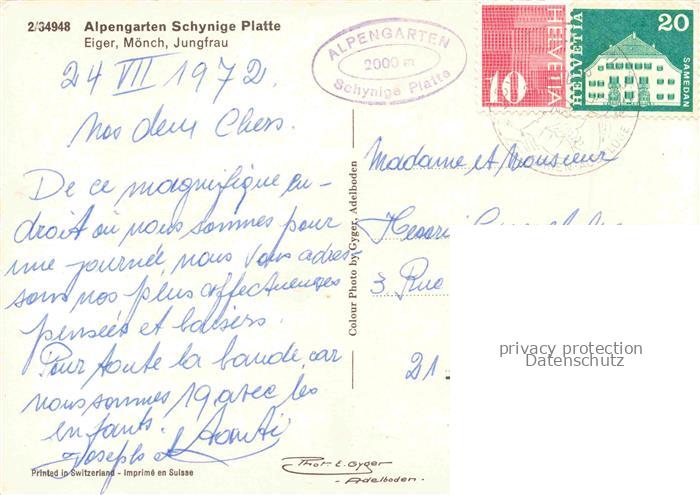 2/34948 Alpengarten Schynige Platte
Eiger, Mönch, Jungfrau
24 VII 1972.
Nos deux Chers.
De ce magnifique en-
droit où nous sommes pour
une journée, nous vous adres-
sons nos plus affectueuses
pensées et baisers.
Pour toute la bande car
nous sommes 19 avec les
enfants.
Joseph et
Printed in Switzerland - Imprimé en Suisse
Colour Photo by Gyger, Adelboden
ALPENGARTEN
2000 m
Schynige Platte
10 HELVETIA
HELVETIA 20 SAMEDAN
Madame et Monsieur
Henri
3. Rue
21
privacy protection
Datenschutz
Phot. E. Gyger
- Adelboden -